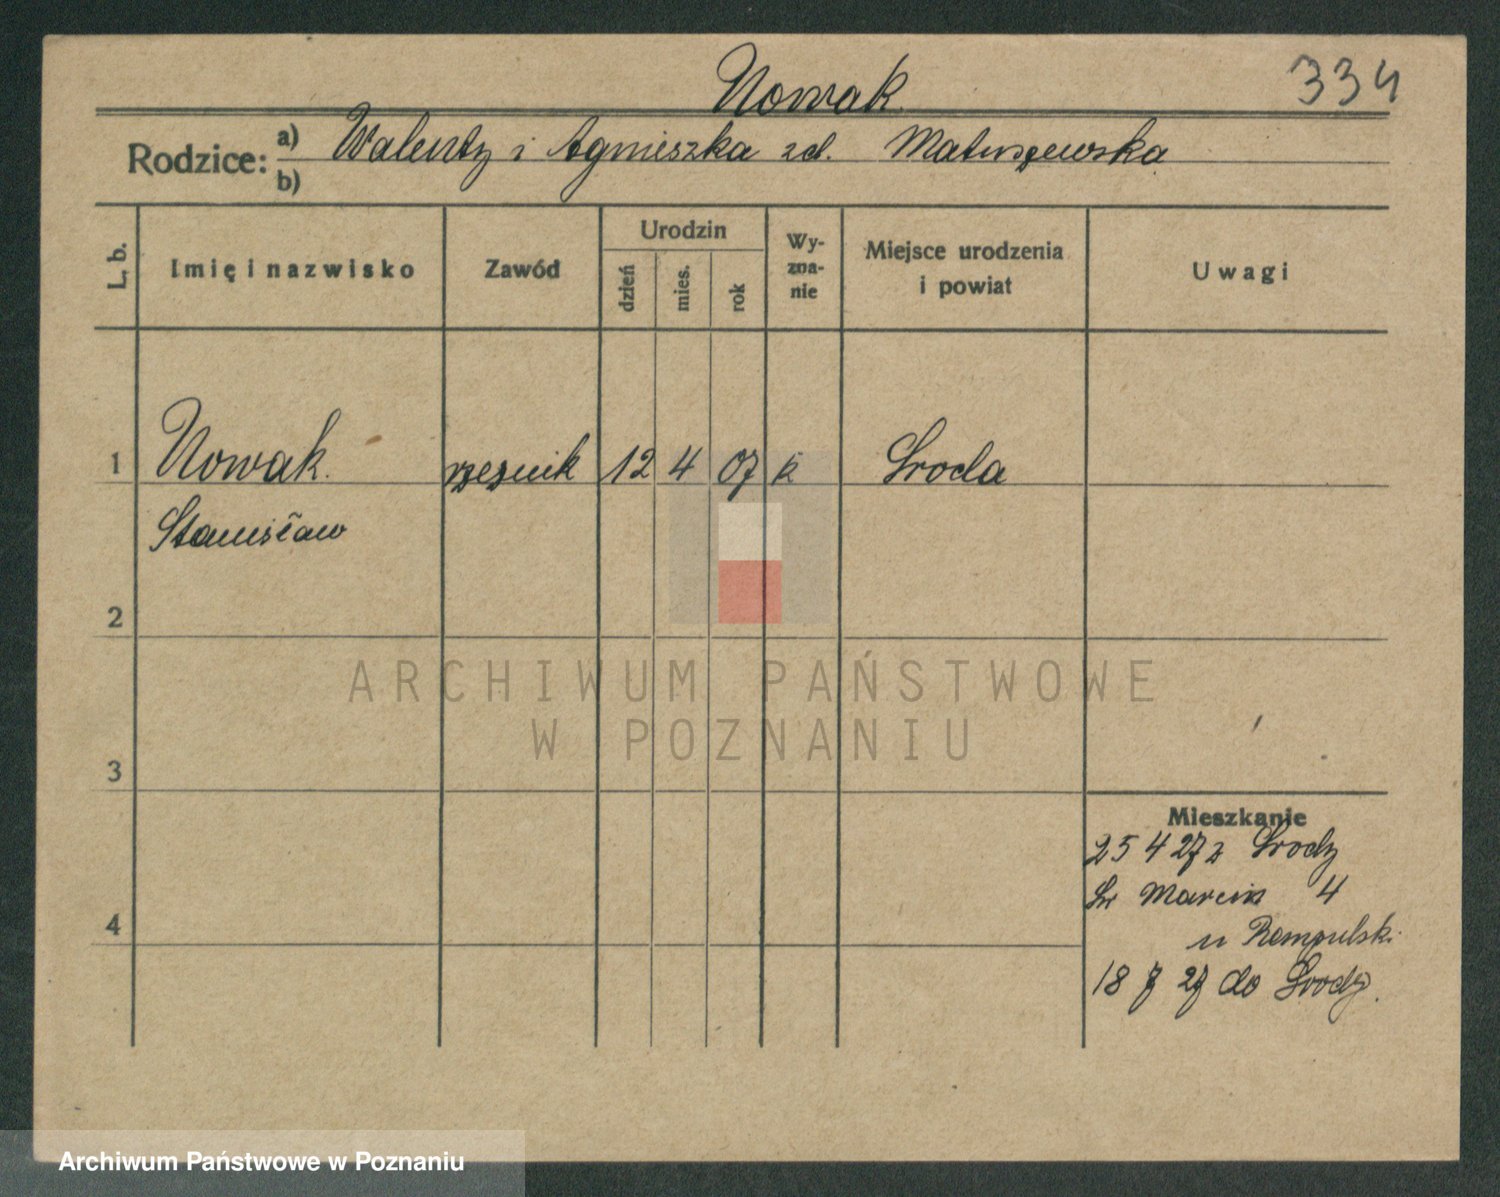 Nowak
334
Rodzice: a) Walenty i Agnieszka zd. Matuszewska
b)
L. b. Imię i nazwisko Zawód Urodzin dzień mies. rok Wy-zna-nie Miejsce urodzenia i powiat Uwagi
1 Nowak rzeźnik 12 4 07 k Sroda
Stanisław
2
ARCHIWUM PAŃSTWOWE
W POZNANIU
3
Mieszkanie
25 4 27 z Srody
Św Marcin 4
u Rompulski
4
18 7 27 do Srody.
Archiwum Państwowe w Poznaniu